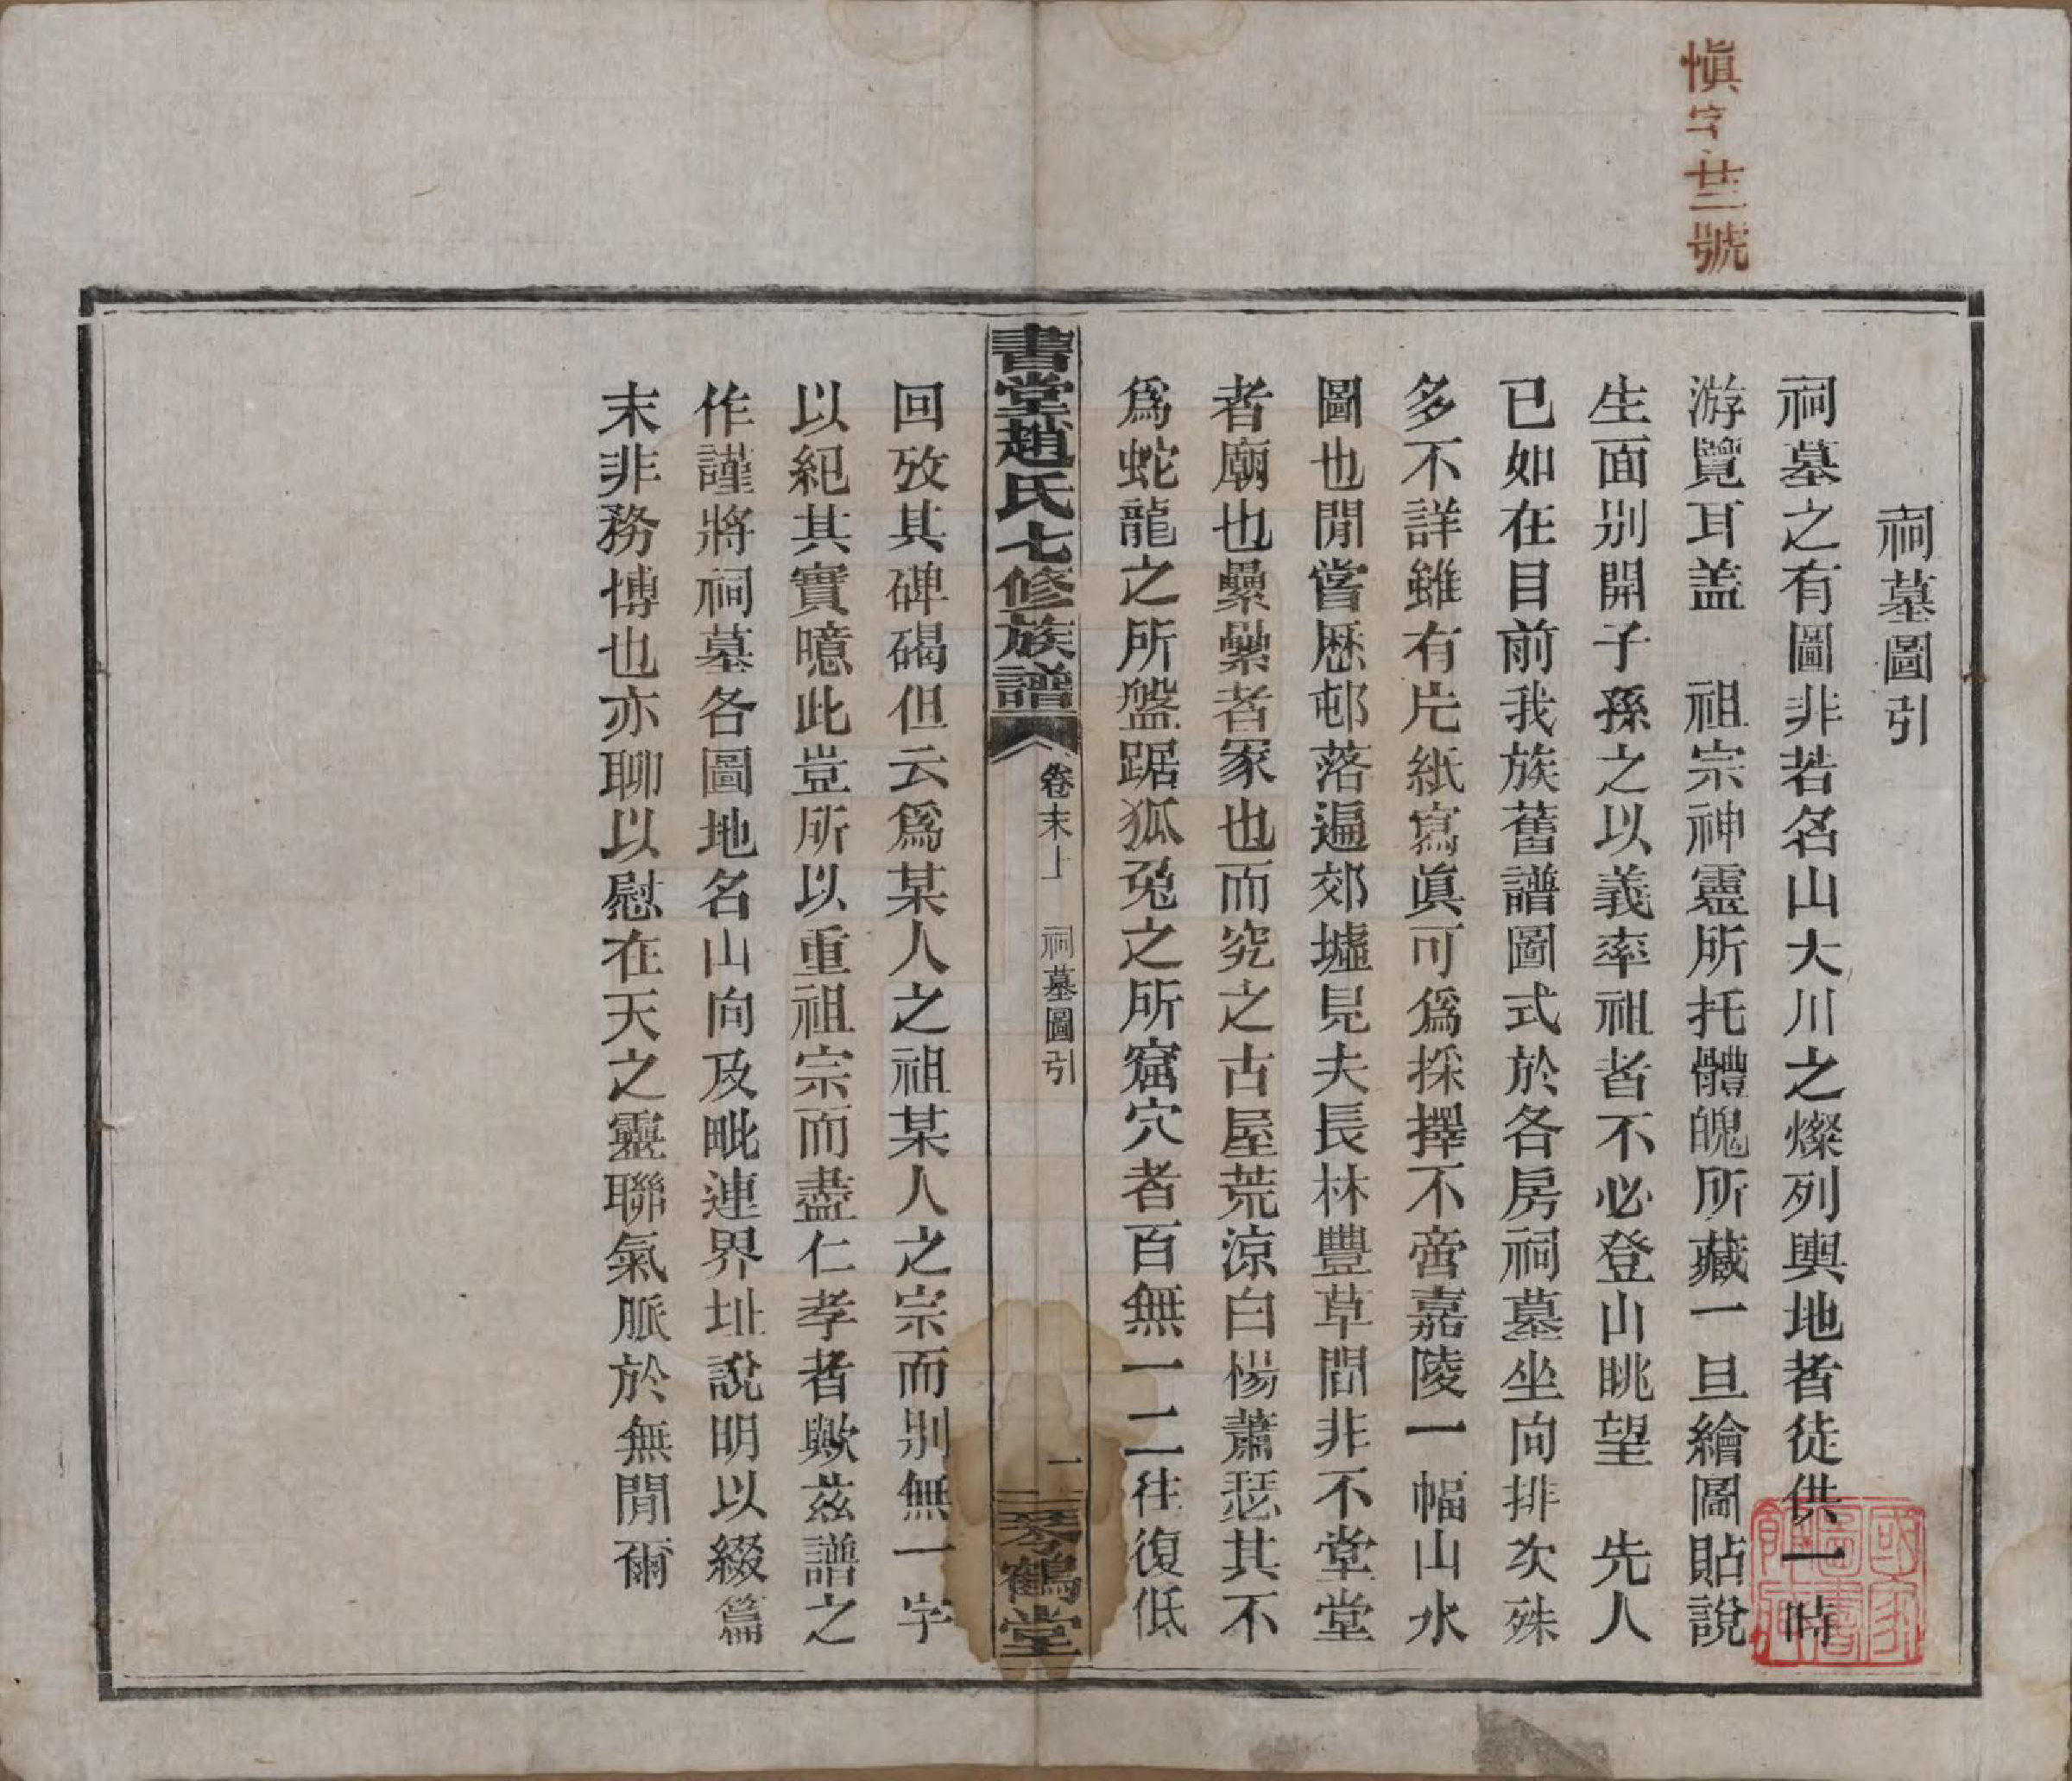 慎字廿三號
祠墓圖引
祠墓之有圖非若名山大川之燦列輿地者徒供一時
游覽耳盖　祖宗神靈所托體魄所藏一旦繪圖貼說
生面別開子孫之以義率祖者不必登山眺望　先人
已如在目前我族舊譜圖式於各房祠墓坐向排次殊
多不詳雖有片紙寫眞可爲採擇不啻嘉陵一幅山水
圖也閒嘗歷邨落遍郊墟見夫長林豐草間非不堂堂
者廟也纍纍者冢也而究之古屋荒涼白楊蕭瑟其不
爲蛇龍之所盤踞狐兔之所窟穴者百無一二往復低
書堂趙氏七修族譜
卷末上　祠墓圖引
一
琴鶴堂
回攷其碑碣但云爲某人之祖某人之宗而别無一字
以紀其實噫此豈所以重祖宗而盡仁孝者歟茲譜之
作謹將祠墓各圖地名山向及毗連界址說明以綴篇
末非務博也亦聊以慰在天之靈聯氣脈於無閒爾
國家圖書館藏